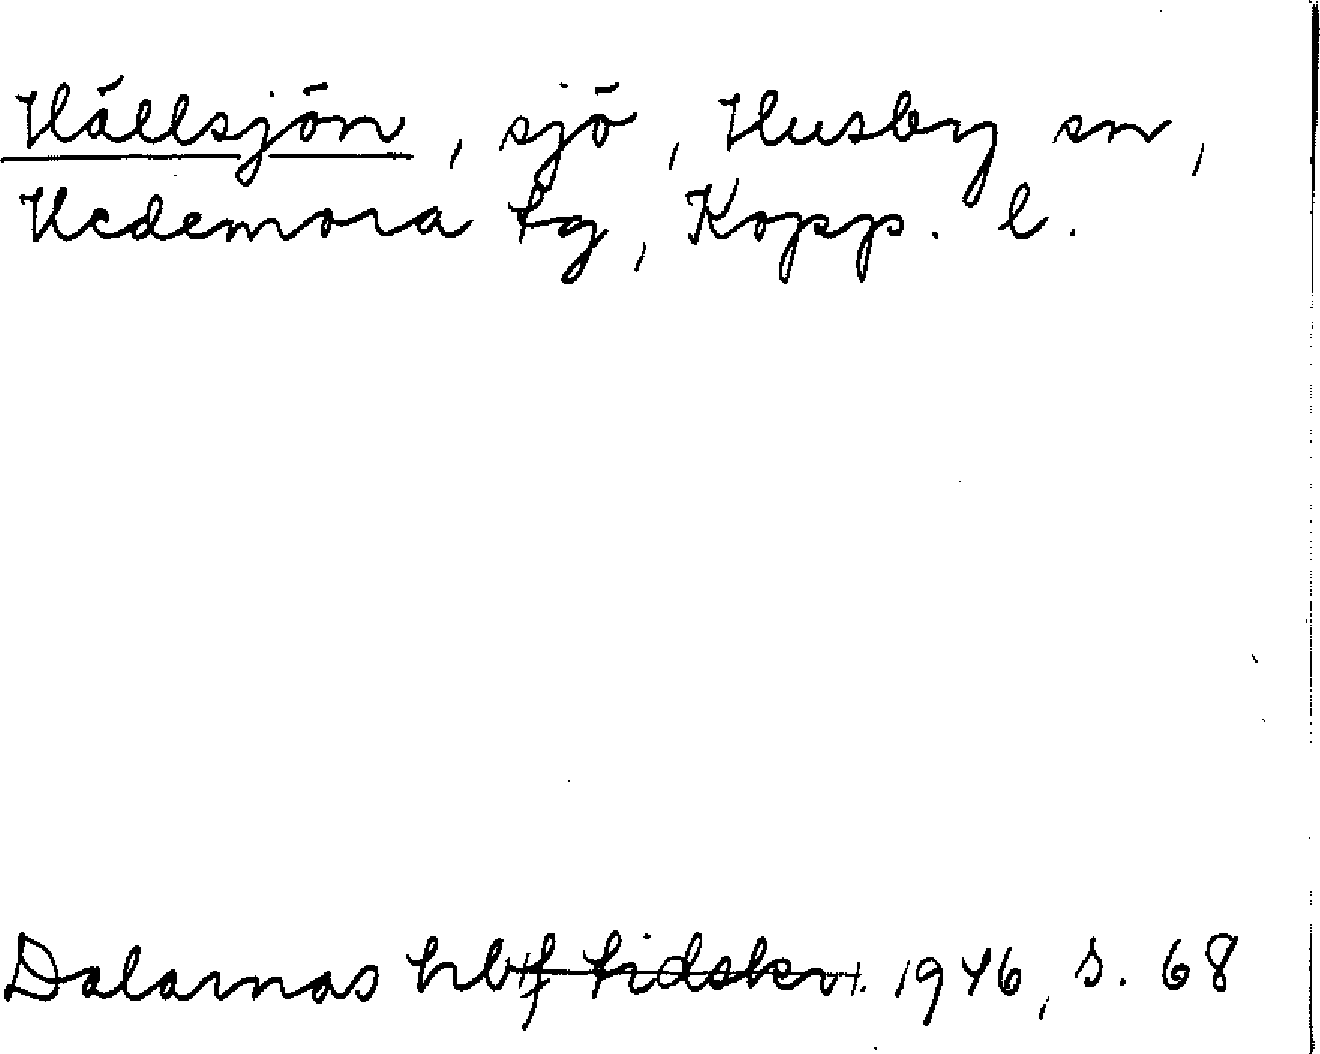 Hällsjön, sjö, Husby sn,
Hedemora tg, Kopp. l.
Dalarnas hbf tidskr. 1946, s. 68